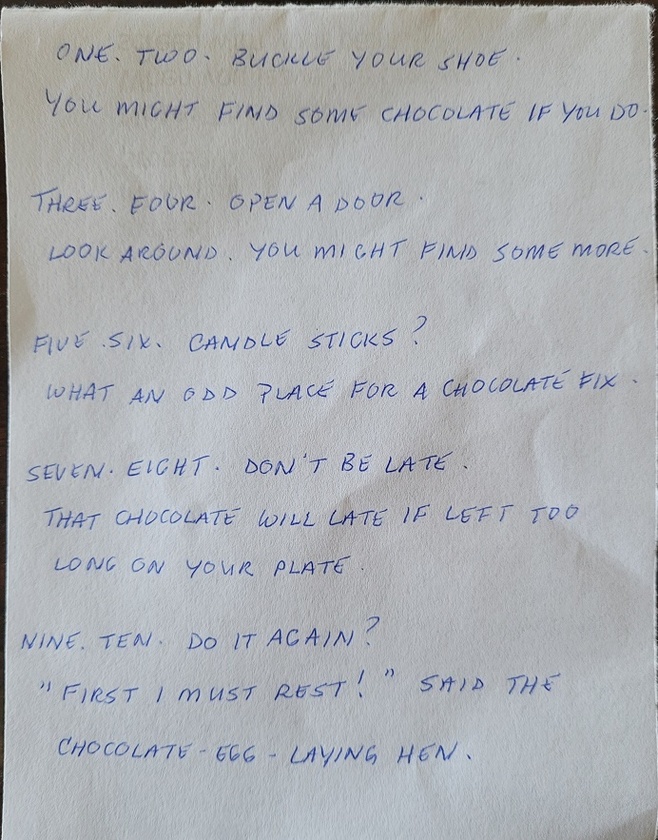 ONE. TWO. BUCKLE YOUR SHOE.
YOU MIGHT FIND SOME CHOCOLATE IF YOU DO.
THREE. FOUR. OPEN A DOOR.
LOOK AROUND. YOU MIGHT FIND SOME MORE.
FIVE. SIX. CANDLE STICKS?
WHAT AN ODD PLACE FOR A CHOCOLATE FIX.
SEVEN. EIGHT. DON'T BE LATE.
THAT CHOCOLATE WILL LATE IF LEFT TOO
LONG ON YOUR PLATE.
NINE. TEN. DO IT AGAIN?
"FIRST I MUST REST!" SAID THE
CHOCOLATE-EGG-LAYING HEN.